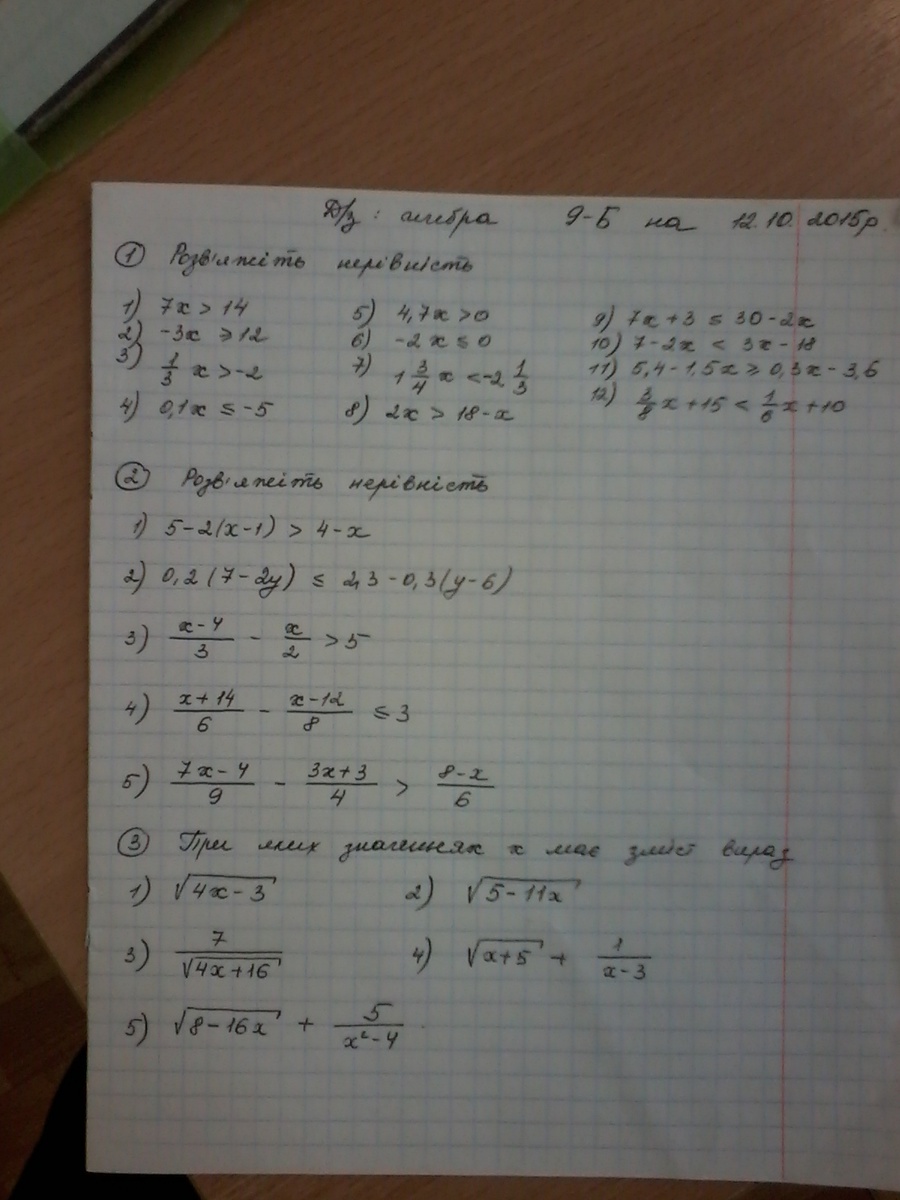 Д/з: алгебра 9-Б на 12.10.2015р.
① Розв'яжіть нерівність
1) 7x > 14
2) -3x ⩾ 12
3) 1/3 x > -2
4) 0,1x ⩽ -5
5) 4,7x > 0
6) -2x ⩽ 0
7) 1 3/4 x < -2 1/3
8) 2x > 18 - x
9) 7x + 3 ⩽ 30 - 2x
10) 7 - 2x < 3x - 18
11) 5,4 - 1,5x ⩾ 0,3x - 3,6
12) x + 15 < 1/6 x + 10
② Розв'яжіть нерівність
1) 5 - 2(x - 1) > 4 - x
2) 0,2(7 - 2y) ⩽ 2,3 - 0,3(y - 6)
3) (x - 4)/3 - x/2 > 5
4) (x + 14)/6 - (x - 12)/8 ⩽ 3
5) (7x - 4)/9 - (3x + 3)/4 > (8 - x)/6
③ При яких значеннях x має зміст вираз
1) √(4x - 3) 2) √(5 - 11x)
3) 7/√(4x + 16) 4) √(x + 5) + 1/(x - 3)
5) √(8 - 16x) + 5/(x² - 4)